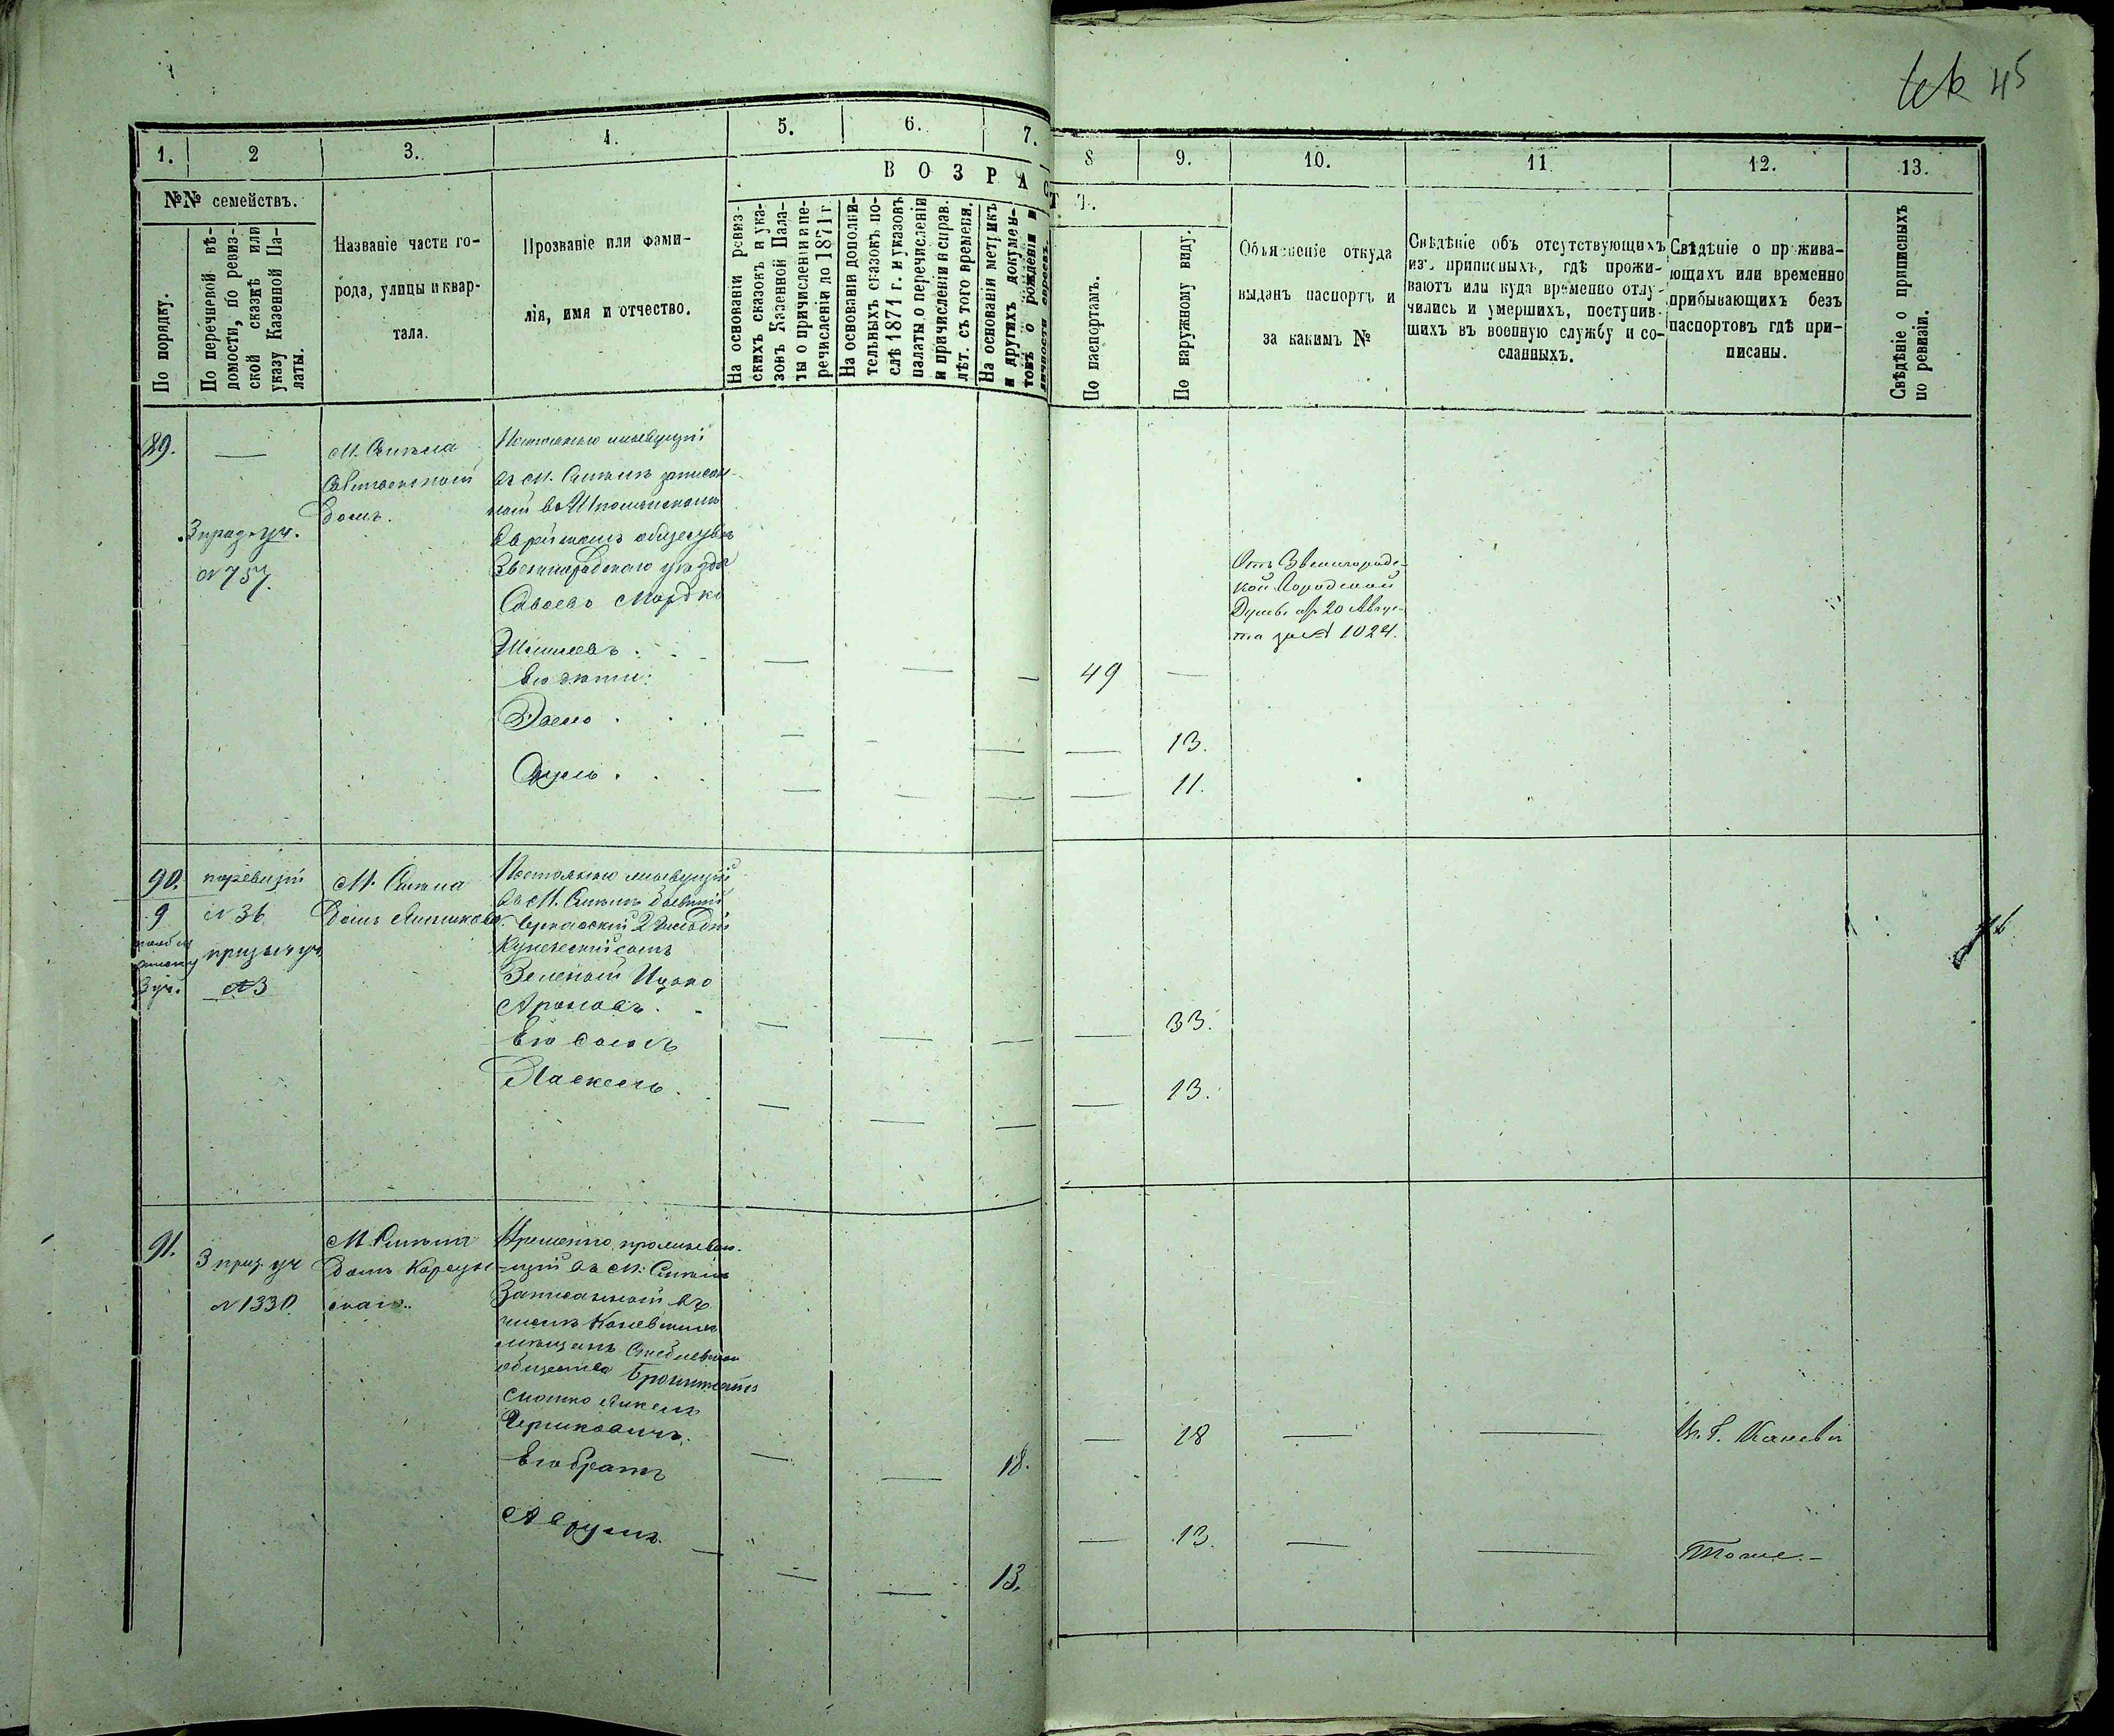 45
1.
2
3.
4.
5.
6.
7.
8
9.
10.
11
12.
13.
ВОЗРАСТЪ.
№№ семействъ.
По порядку.
По перечневой вѣ-
домости, по ревиз-
ской сказкѣ или
указу Казенной Па-
латы.
Названіе части го-
рода, улицы и квар-
тала.
Прозваніе или фами-
лія, имя и отчество.
На основаніи ревиз-
скихъ сказокъ и ука-
зовъ Казенной Пала-
ты о причисленіи и пе-
речисленіи до 1871 г.
На основаніи дополни-
тельныхъ сказокъ по-
слѣ 1871 г. и указовъ
палаты о перечисленіи
и причисленіи и справ.
лѣт. съ того времени.
На основаніи метрикъ
и другихъ докумен-
товъ о рожденіи и
личности евреевъ.
По паспортамъ.
По наружному виду.
Объясненіе откуда
выданъ паспортъ и
за какимъ №
Свѣдѣніе объ отсутствующихъ
изъ приписныхъ, гдѣ прожи-
ваютъ или куда временно отлу-
чились и умершихъ, поступив-
шихъ въ военную службу и со-
сланныхъ.
Свѣдѣніе о прожива-
ющихъ или временно
прибывающихъ безъ
паспортовъ гдѣ при-
писаны.
Свѣдѣніе о приписныхъ
по ревизіи.
89.
—
3 приз. уч.
№ 757.
М. Смѣла
домъ.
Постоянно живущій
въ М. Смѣлѣ записан-
ный въ Шполянскомъ
Еврейскомъ обществѣ
Звенигородскаго уѣзда
Мордко
его дѣти:
Отъ Звенигород-
ской Городской
Думы отъ 20 Авгус-
та за № 1024.
49
—
13.
11.
90.
9
3 уч.
по ревизіи
№ 36
призыв уч
№ 3
М. Смѣла
Домъ
Постоянно живущій
въ М. Смѣлѣ бывшій
Черкасскій 2 гильдіи
Купеческій сынъ
Зеленый Ицко
Ароновъ.
Его сынъ
Хаскель.
33.
13.
91.
3 приз. уч
№ 1330.
М. Смѣла
Домъ Корсун-
скаго.
Временно проживаю-
щій въ М. Смѣлѣ
Записанный въ
числѣ Каневскихъ
мѣщанъ
общества
Его братъ
Аврумъ.
18.
18
Из. Г. Канева
13.
13.
Тоже.—